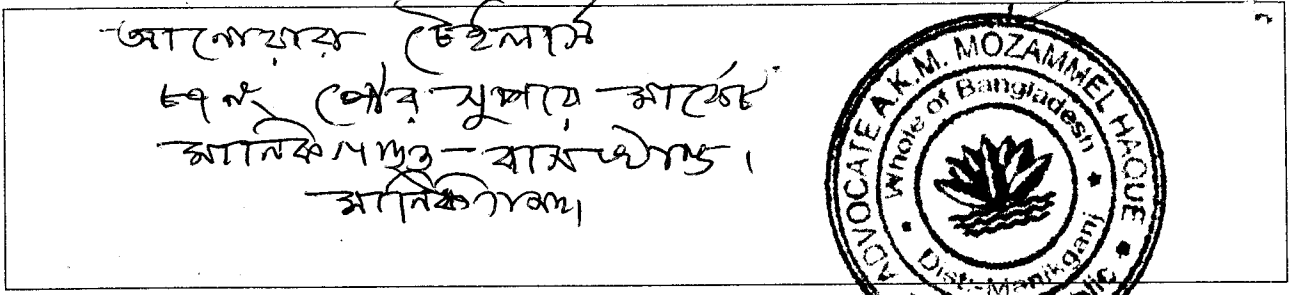 আনোয়ার টেইলার্স
৮৭ নং পৌর সুপার মার্কেট
মানিকগঞ্জ - বাসষ্ট্যান্ড।
মানিকগঞ্জ।
ADVOCATE A.K.M. MOZAMMEL HAQUE
Whole of Bangladesh
Dist:-Manikganj